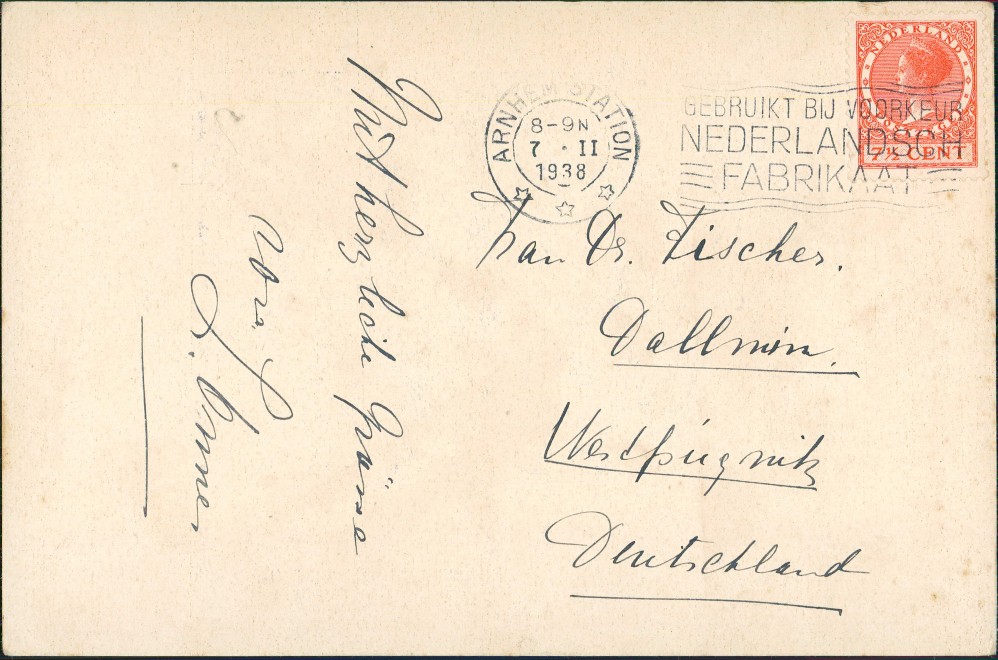 Mit herzliche Grüsse
von
ARNHEM STATION
8-9N
7 · II
1938
GEBRUIKT BIJ VOORKEUR
NEDERLANDSCH
FABRIKAAT
NEDERLAND
7½ CENT
Frau Dr. Fischer.
Dallmin.
Westpriegnitz
Deutschland